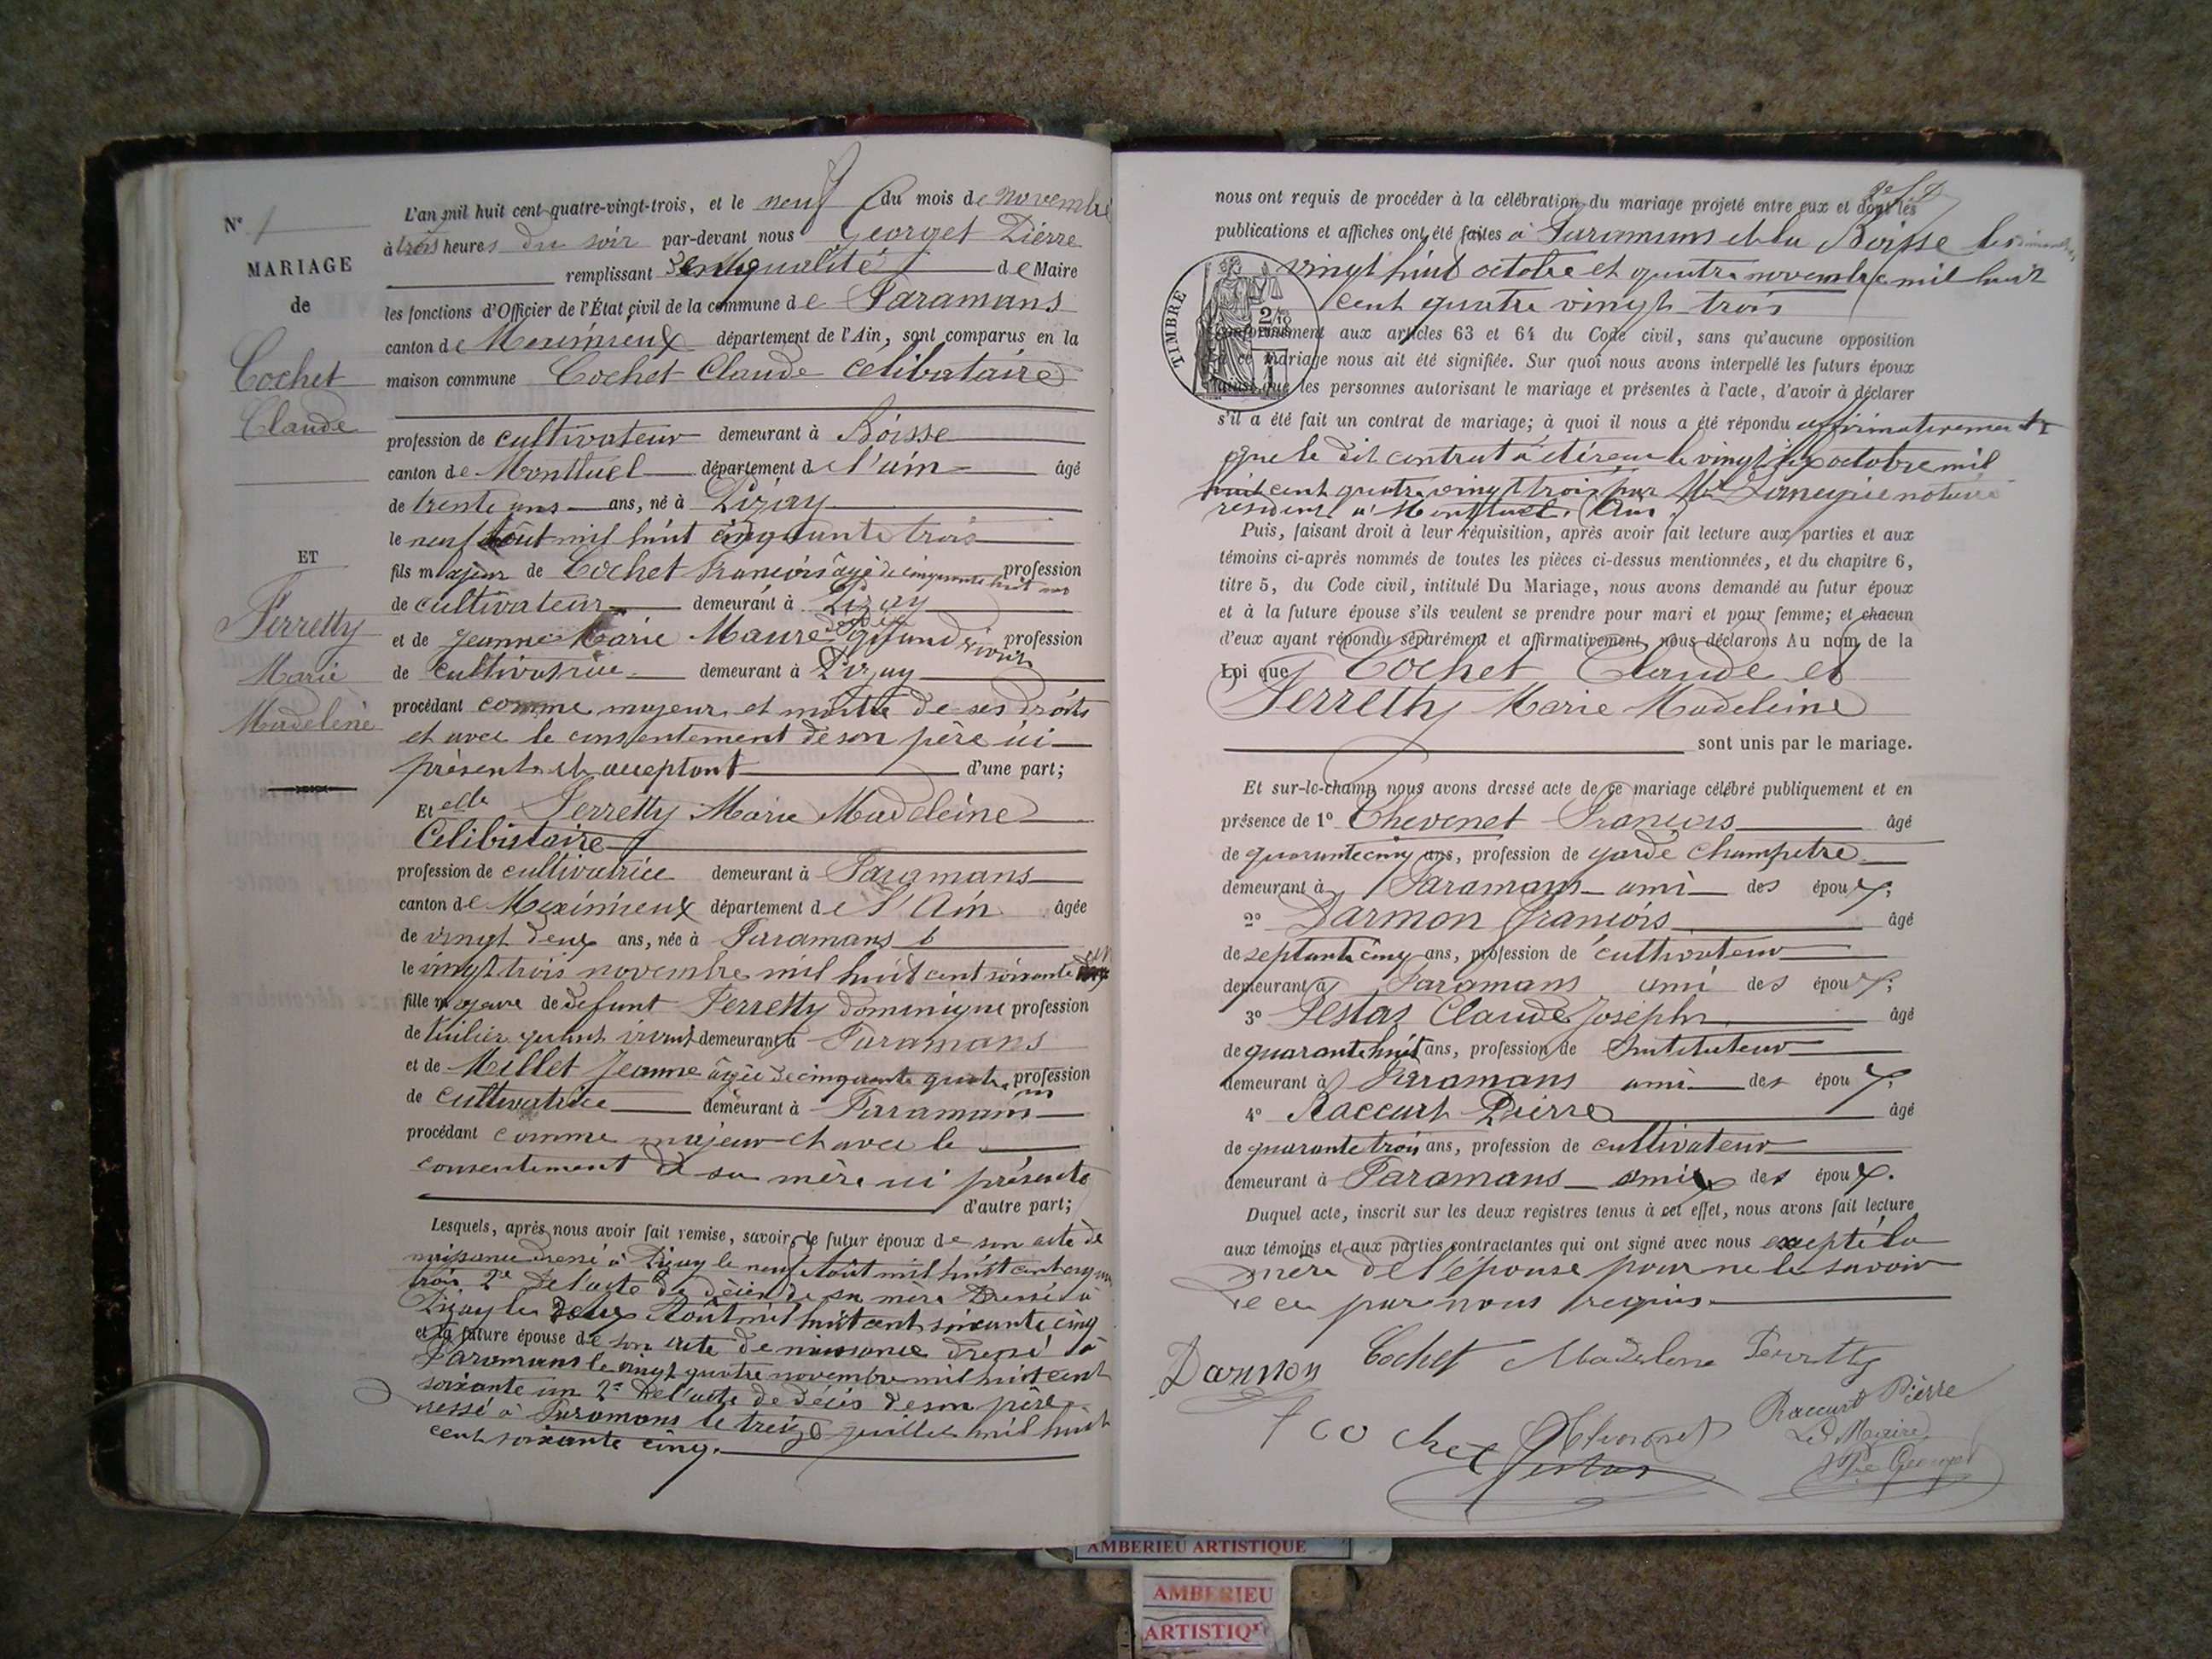 N° 1
MARIAGE
de
Cochet
Claude
ET
Ferretty
Marie
Madeleine
L'an mil huit cent quatre-vingt-trois, et le neuf du mois de novembre
à trois heures du soir par-devant nous Georget Pierre
remplissant en qualité de Maire
les fonctions d'Officier de l'État civil de la commune de Faramans
canton de Meximieux département de l'Ain, sont comparus en la
maison commune Cochet Claude célibataire
profession de cultivateur demeurant à Boisse
canton de Montluel département de l'ain âgé
de trente ans ans, né à Pizay
le neuf août mil huit cinquante trois
fils majeur de Cochet François âgé de cinquante huit ans profession
de cultivateur demeurant à Pizay
et de Jeanne Marie Maure profession
de cultivatrice demeurant à Pizay
procédant comme majeur et maître de ses droits
et avec le consentement de son père ici
présent et acceptant d'une part;
Et elle Ferretty Marie Madeleine
Célibistaire
profession de cultivatrice demeurant à Faramans
canton de Meximieux département de l'Ain âgée
de vingt deux ans, née à Faramans
le vingt trois novembre mil huit cent soixante un
fille majeure de defunt Ferretty Dominique profession
de tuilier quand vivant demeurant à Faramans
et de Millet Jeanne âgée de cinquante quatre ans profession
de cultivatrice demeurant à Faramans
procédant comme majeur et avec le
consentement de sa mère ici présente
d'autre part;
Lesquels, après nous avoir fait remise, savoir, le futur époux de son acte de
naissance dressé à Pizay le neuf août mil huit cent cinquante
trois 2° de l'acte de décès de sa mère dressé à
Pizay le deux Août mil huit cent soixante cinq
et la future épouse de son acte de naissance dressé à
Faramans le vingt quatre novembre mil huit cent
soixante un 2° de l'acte de décès de son père
dressé à Faramans le treize juillet mil huit
cent soixante cinq.
nous ont requis de procéder à la célébration du mariage projeté entre eux et dont les
publications et affiches ont été faites à Faramans et la Boisse les dimanches
vingt huit octobre et quatre novembre mil huit
cent quatre vingt trois
TIMBRE
conformément aux articles 63 et 64 du Code civil, sans qu'aucune opposition
à ce mariage nous ait été signifiée. Sur quoi nous avons interpellé les futurs époux
ainsi que les personnes autorisant le mariage et présentes à l'acte, d'avoir à déclarer
s'il a été fait un contrat de mariage; à quoi il nous a été répondu affirmativement
que le dit contrat a été reçu le vingt six octobre mil
huit cent quatre vingt trois par Mtre notaire
résidant à Montluel, Ain.
Puis, faisant droit à leur réquisition, après avoir fait lecture aux parties et aux
témoins ci-après nommés de toutes les pièces ci-dessus mentionnées, et du chapitre 6,
titre 5, du Code civil, intitulé Du Mariage, nous avons demandé au futur époux
et à la future épouse s'ils veulent se prendre pour mari et pour femme; et chacun
d'eux ayant répondu séparément et affirmativement, nous déclarons Au nom de la
Loi que Cochet Claude et
Ferretty Marie Madeleine
sont unis par le mariage.
Et sur-le-champ nous avons dressé acte de ce mariage célébré publiquement et en
présence de 1° Chevenet François âgé
de quarante cinq ans, profession de garde champetre
demeurant à Faramans ami des époux;
2° Darmon François âgé
de septante cinq ans, profession de cultivateur
demeurant à Faramans ami des époux;
3° Festaz Claude Joseph âgé
de quarante huit ans, profession de Instituteur
demeurant à Faramans ami des époux;
4° Raccurt Pierre âgé
de quarante trois ans, profession de cultivateur
demeurant à Faramans ami des époux.
Duquel acte, inscrit sur les deux registres tenus à cet effet, nous avons fait lecture
aux témoins et aux parties contractantes qui ont signé avec nous excepté la
mère de l'épouse pour ne le savoir
de ce par nous requis.
Darmon Cochet Madeleine Ferretty
f cochet Chevenet Raccurt Pierre
Festaz Le Maire
Pre Georget
AMBERIEU ARTISTIQUE
AMBERIEU
ARTISTIQU